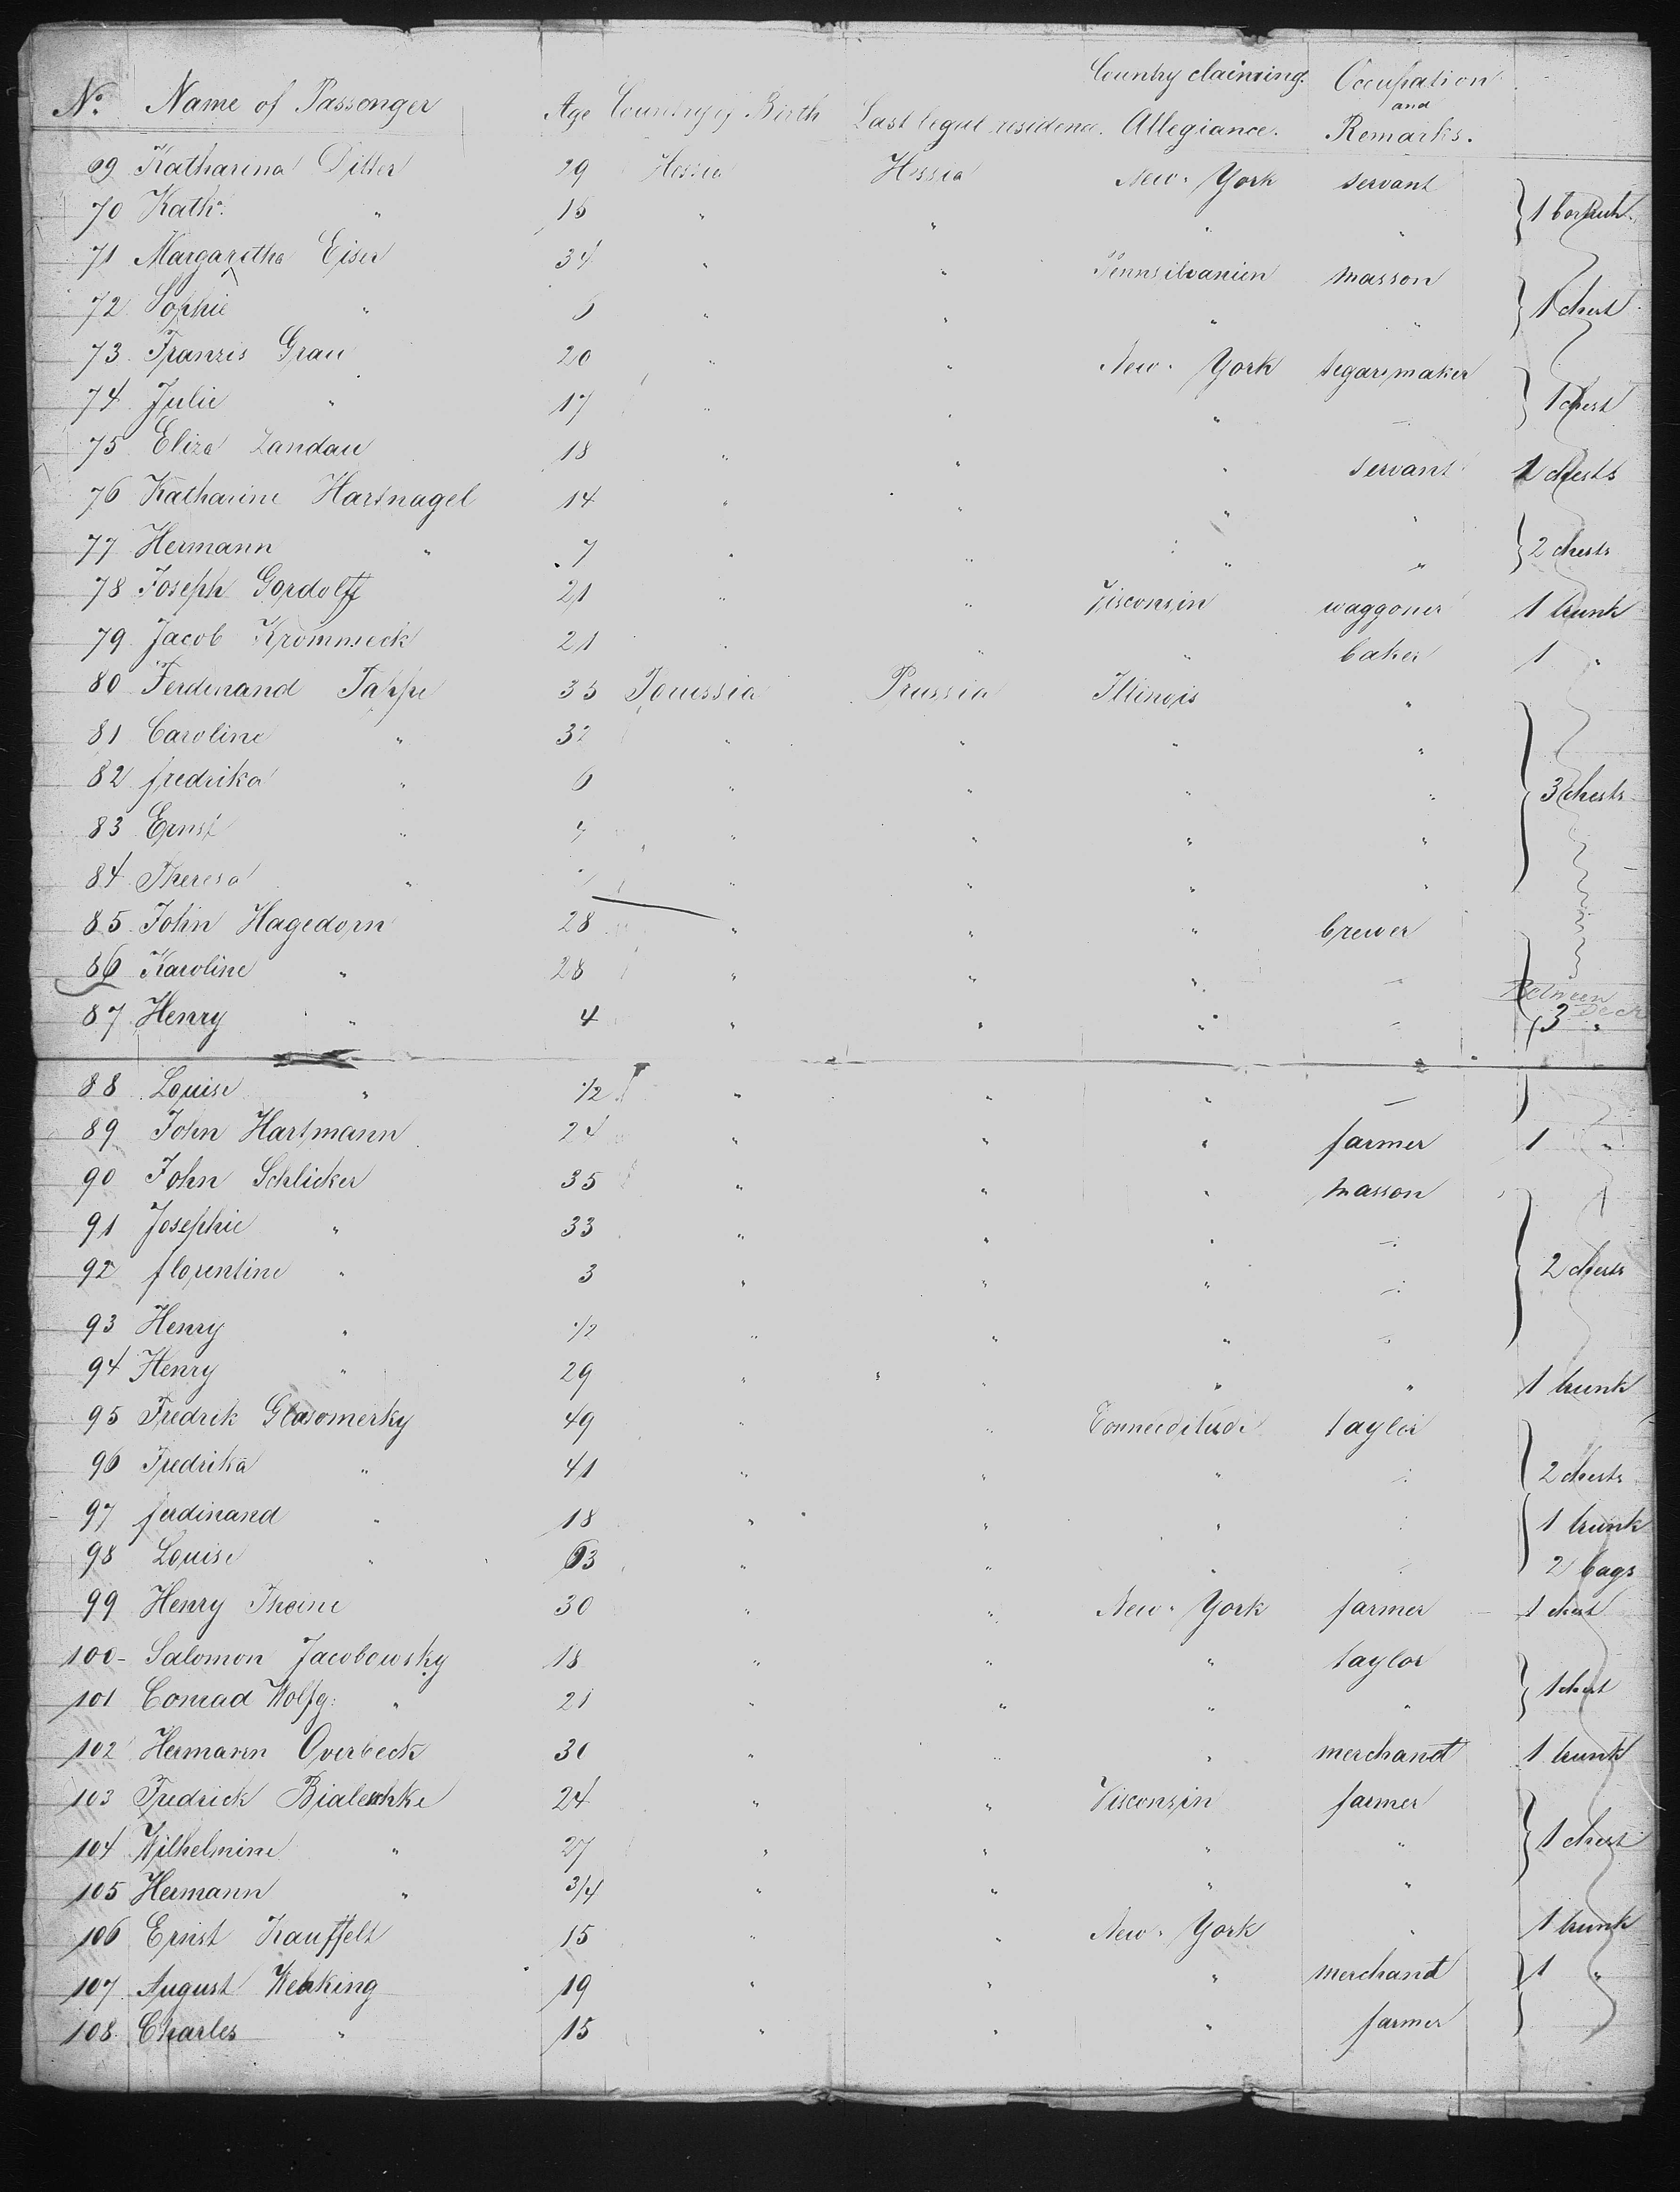 Country claiming. Occupation
and
No. Name of Passenger Age Country of Birth Last legal residence. Allegiance. Remarks.
69 Katharina Ditter 29 Hessia Hessia New-York servant
70 Kath. " 15 " " " " 1 trunk
71 Margaretha Eiser 34 " " Pennsilvanien masson
72 Sophie " " " " " 1 chest
73 Franzis Grau 20 " " New-York segarsmaker
74 Julie " 17 " " " 1 chest
75 Eliza Landau 18 " " " servant 2 chests
76 Katharine Hartnagel 14 " " " "
77 Hermann " 7 " " " " 2 chests
78 Joseph Gordolff 21 " " Visconsin waggoner 1 trunk
79 Jacob Krommeck 21 " " " baker 1 "
80 Ferdinand Tappe 35 Prussia Prussia Illinois "
81 Caroline " 32 " " " "
82 fredrika " 6 " " " " 3 chests
83 Ernst " " " " "
84 Theresa " " " " "
85 John Hagedorn 28 " " " brewer
86 Karoline " 28 " " "
Between Deck
87 Henry " 4 " " " 3 "
88 Louise " 1/2 " " "
89 John Hartmann 24 " " " farmer 1 "
90 John Schlicker 35 " " " masson
91 Josephie " 33 " " " "
92 florentine " 3 " " " " 2 chests
93 Henry " 1/2 " " " "
94 Henry " 29 " " " " 1 trunk
95 Fredrik Glasomerky 49 " " Conneeditudi taylor
96 Fredrika " 41 " " " " 2 chests
97 ferdinand " 18 " " " " 1 trunk
98 Louise " 63 " " " " 2 bags
99 Henry Theine 30 " " New-York farmer 1 chest
100 - Salomon Jacobowsky 18 " " " taylor
101 Conrad Wolfg: " 21 " " " " 1 chest
102 Hermann Overbeck 30 " " " merchand 1 trunk
103 Fredrick Bialeschke 24 " " Visconsin farmer
104 Wilhelmine " 27 " " " " 1 chest
105 Hermann " 3/4 " " " "
106 Ernst Kauffelt 15 " " New-York " 1 trunk
107 August Wehking 19 " " " merchand 1 "
108 Charles " 15 " " " farmer